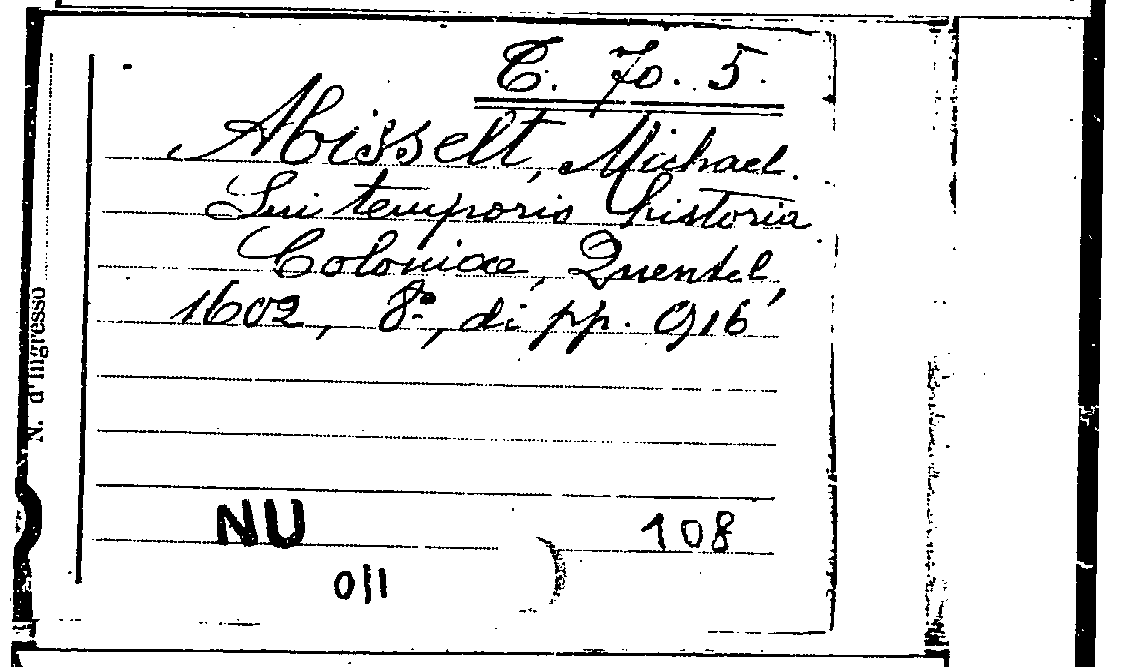 C. 70. 5.
Aisselt, Michael.
Sui temporis historia
Coloniae, Quentel,
1602, 8º, di pp. 916
N. d'Ingresso
NU
108
0/1